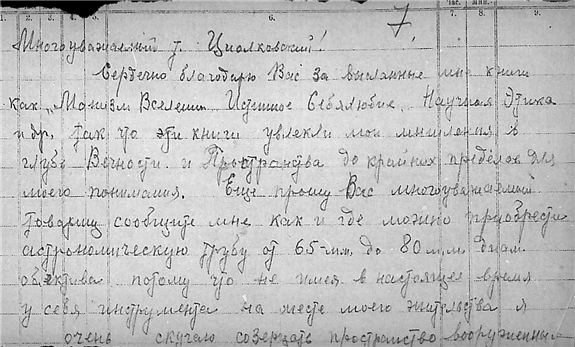 1. 2. 3. 4. 5. 6. 7. 8. 9.
7.
Многоуважаемый т. Циолковский!
Сердечно благодарю Вас за высланные мне книги
как „Монизм Вселенн. Истинное Себялюбие, Научная Этика
и др. Так что эти книги увлекли мои мышления в
глубь Вечности и Пространства до крайних пределов для
моего понимания. Еще прошу Вас многоуважаемый
товарищ сообщите мне как и где можно приобрести
астрономическую трубу от 65 м.м. до 80 м.м. диам.
объектива потому что не имея в настоящее время
у себя инструмента на месте моего жительства я
очень скучаю созерцать пространство вооруженным